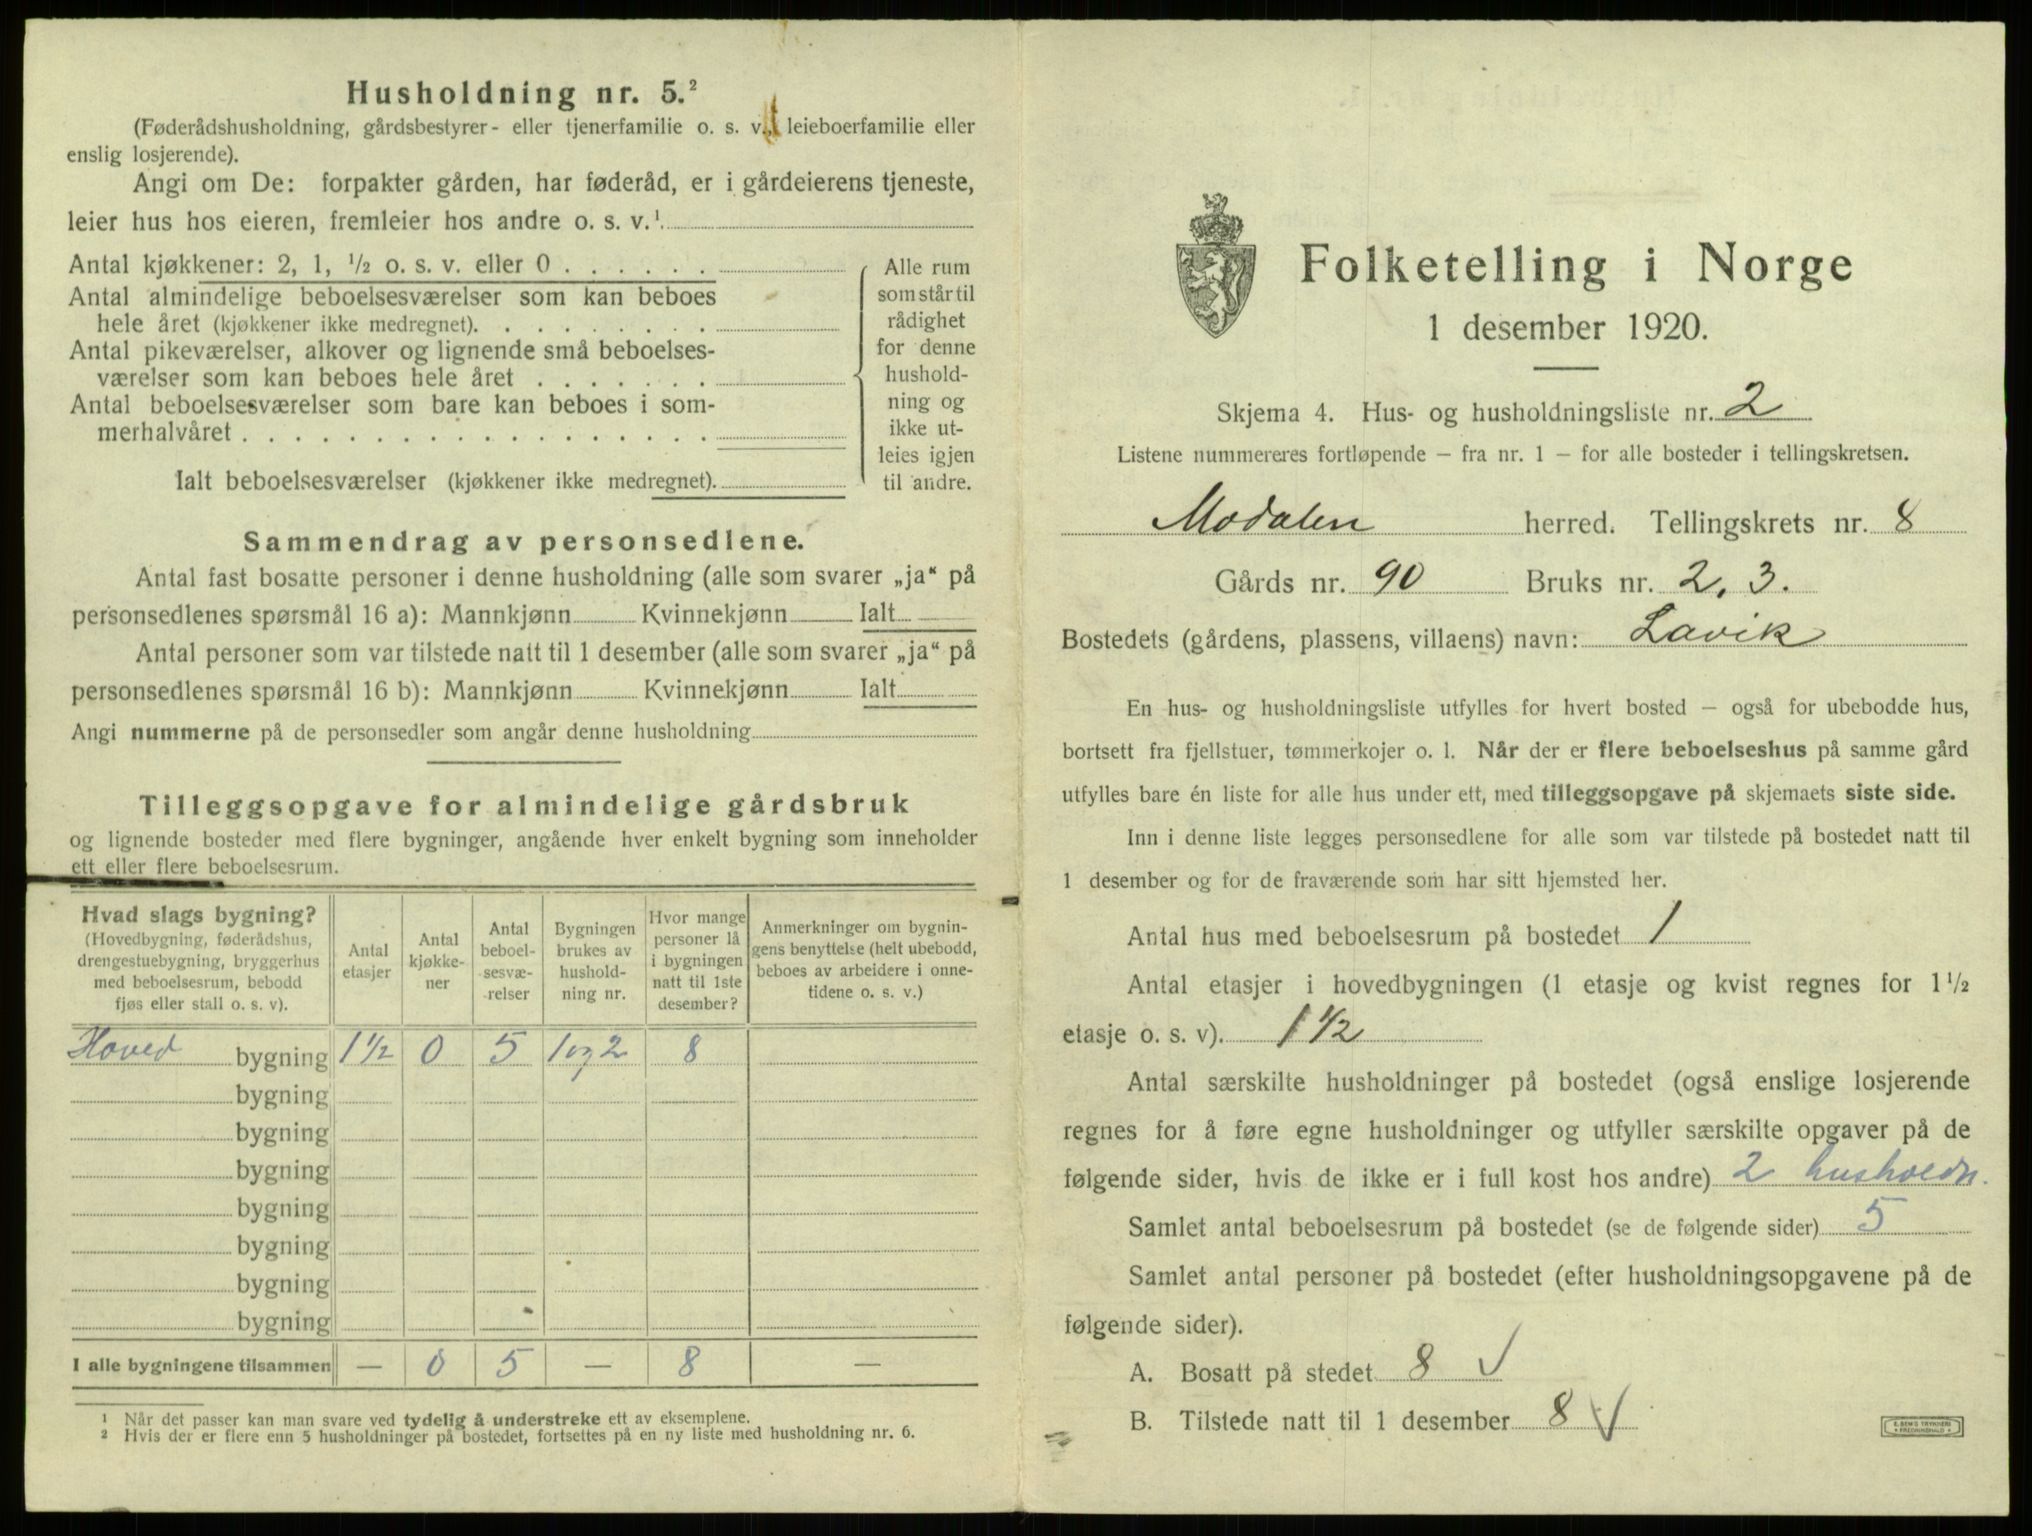 Husholdning nr. 5.²
(Føderådshusholdning, gårdsbestyrer- eller tjenerfamilie o. s. v., leieboerfamilie eller
enslig losjerende).
Angi om De: forpakter gården, har føderåd, er i gårdeierens tjeneste,
leier hus hos eieren, fremleier hos andre o. s. v.¹
Antal kjøkkener: 2, 1, ½ o. s. v. eller 0 . . . . . .
Antal almindelige beboelsesværelser som kan beboes
hele året (kjøkkener ikke medregnet). . . . . . . .
Antal pikeværelser, alkover og lignende små beboelses-
værelser som kan beboes hele året . . . . . . .
Antal beboelsesværelser som bare kan beboes i som-
merhalvåret . . . . . . . . . . . . . . . . . .
Ialt beboelsesværelser (kjøkkener ikke medregnet).
Alle rum
som står til
rådighet
for denne
hushold-
ning og
ikke ut-
leies igjen
til andre.
Sammendrag av personsedlene.
Antal fast bosatte personer i denne husholdning (alle som svarer „ja“ på
personsedlenes spørsmål 16 a): Mannkjønn Kvinnekjønn Ialt
Antal personer som var tilstede natt til 1 desember (alle som svarer „ja“ på
personsedlenes spørsmål 16 b): Mannkjønn Kvinnekjønn Ialt
Angi nummerne på de personsedler som angår denne husholdning
Tilleggsopgave for almindelige gårdsbruk
og lignende bosteder med flere bygninger, angående hver enkelt bygning som inneholder
ett eller flere beboelsesrum.
Hvad slags bygning?
(Hovedbygning, føderådshus,
drengestuebygning, bryggerhus
med beboelsesrum, bebodd
fjøs eller stall o. s. v).
Antal
etasjer
Antal
kjøkke-
ner
Antal
beboel-
sesvæ-
relser
Bygningen
brukes av
hushold-
ning nr.
Hvor mange
personer lå
i bygningen
natt til 1ste
desember?
Anmerkninger om bygnin-
gens benyttelse (helt ubebodd,
beboes av arbeidere i onne-
tidene o. s. v.)
Hoved bygning 1½ 0 5 1 og 2 8
bygning
bygning
bygning
bygning
bygning
bygning
bygning
I alle bygningene tilsammen — 0 5 — 8 —
¹ Når det passer kan man svare ved tydelig å understreke ett av eksemplene.
² Hvis der er flere enn 5 husholdninger på bostedet, fortsettes på en ny liste med husholdning nr. 6.
Folketelling i Norge
1 desember 1920.
Skjema 4. Hus- og husholdningsliste nr. 2
Listene nummereres fortløpende – fra nr. 1 – for alle bosteder i tellingskretsen.
Modalen herred. Tellingskrets nr. 8
Gårds nr. 90 Bruks nr. 2, 3.
Bostedets (gårdens, plassens, villaens) navn: Lavik
En hus- og husholdningsliste utfylles for hvert bosted – også for ubebodde hus,
bortsett fra fjellstuer, tømmerkojer o. l. Når der er flere beboelseshus på samme gård
utfylles bare én liste for alle hus under ett, med tilleggsopgave på skjemaets siste side.
Inn i denne liste legges personsedlene for alle som var tilstede på bostedet natt til
1 desember og for de fraværende som har sitt hjemsted her.
Antal hus med beboelsesrum på bostedet 1
Antal etasjer i hovedbygningen (1 etasje og kvist regnes for 1½
etasje o. s. v). 1½
Antal særskilte husholdninger på bostedet (også enslige losjerende
regnes for å føre egne husholdninger og utfyller særskilte opgaver på de
følgende sider, hvis de ikke er i full kost hos andre) 2 husholdn.
Samlet antal beboelsesrum på bostedet (se de følgende sider) 5
Samlet antal personer på bostedet (efter husholdningsopgavene på de
følgende sider).
A. Bosatt på stedet 8 √
B. Tilstede natt til 1 desember 8 √
E. SEM'S TRYKKERI
FREDRIKSHALD